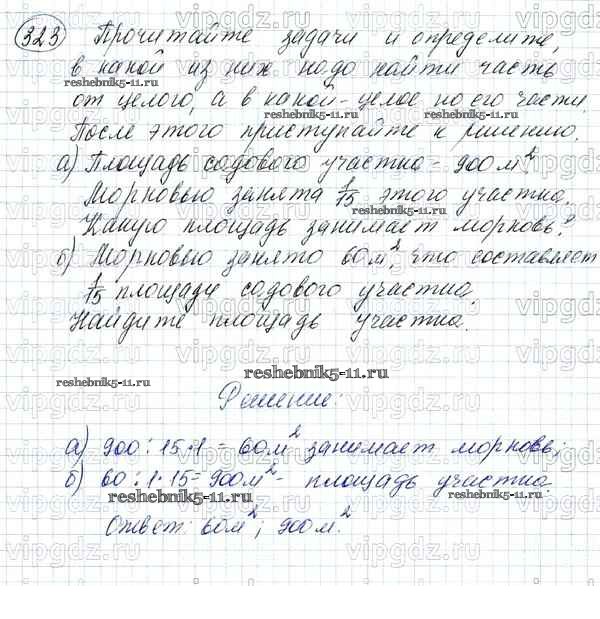 323 Прочитайте задачи и определите,
в какой из них надо найти часть
от целого, а в какой - целое по его части.
После этого приступайте к решению.
а) Площадь садового участка - 900 м².
Морковью занята 1/15 этого участка.
Какую площадь занимает морковь?
б) Морковью занято 60 м², что составляет
1/15 площади садового участка.
Найдите площадь участка.
reshebnik5-11.ru
Решение:
а) 900 : 15 · 1 = 60 м² занимает морковь;
б) 60 : 1 · 15 = 900 м² - площадь участка.
Ответ: 60 м²; 900 м².